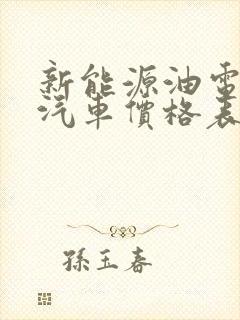 新能源油電
汽車價格表
孫玉春